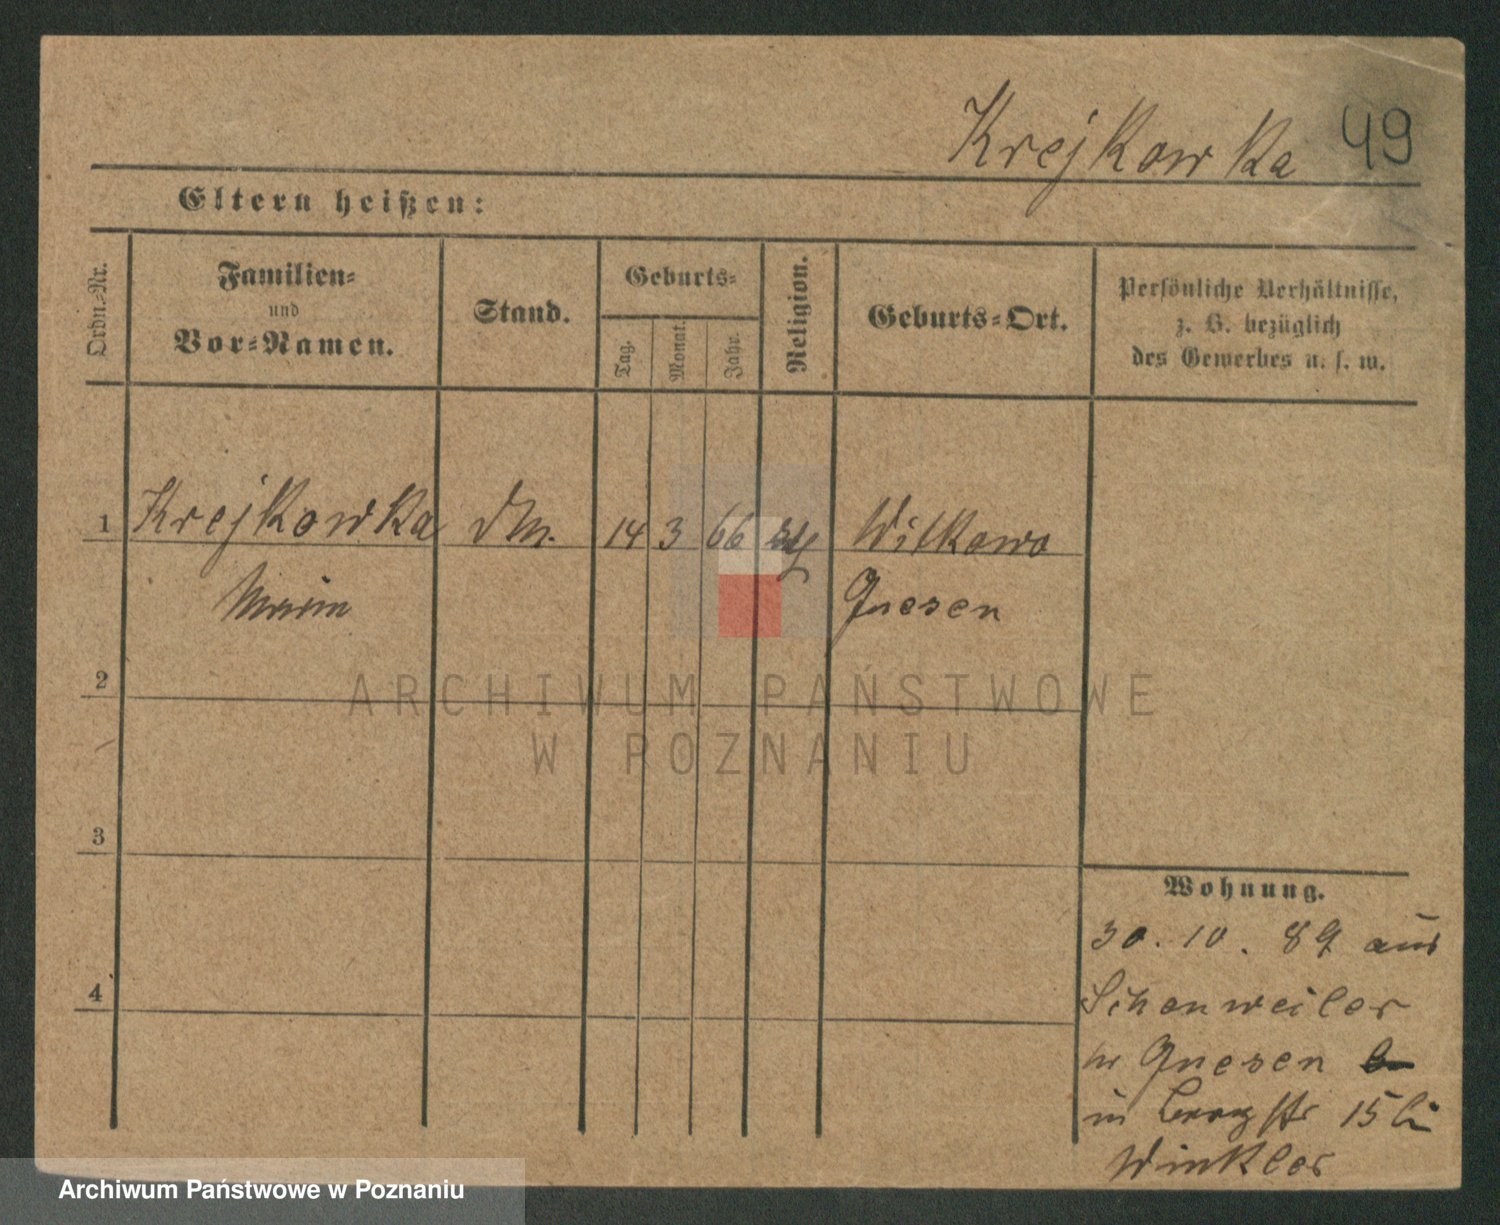 Krejkowka 49
Eltern heißen:
Ordn.=Nr.
Familien=
und
Vor=Namen.
Stand.
Geburts=
Tag.
Monat.
Jahr.
Religion.
Geburts=Ort.
Persönliche Verhältnisse,
z. B. bezüglich
des Gewerbes u. s. w.
1 Krejkowka 14 3 66 Witkowo
Gnesen
2
3
4
Wohnung.
30. 10. 89 aus
Schenweiler
Gnesen
in Bergstr 15 bei
Winkler
ARCHIWUM PAŃSTWOWE
W POZNANIU
Archiwum Państwowe w Poznaniu